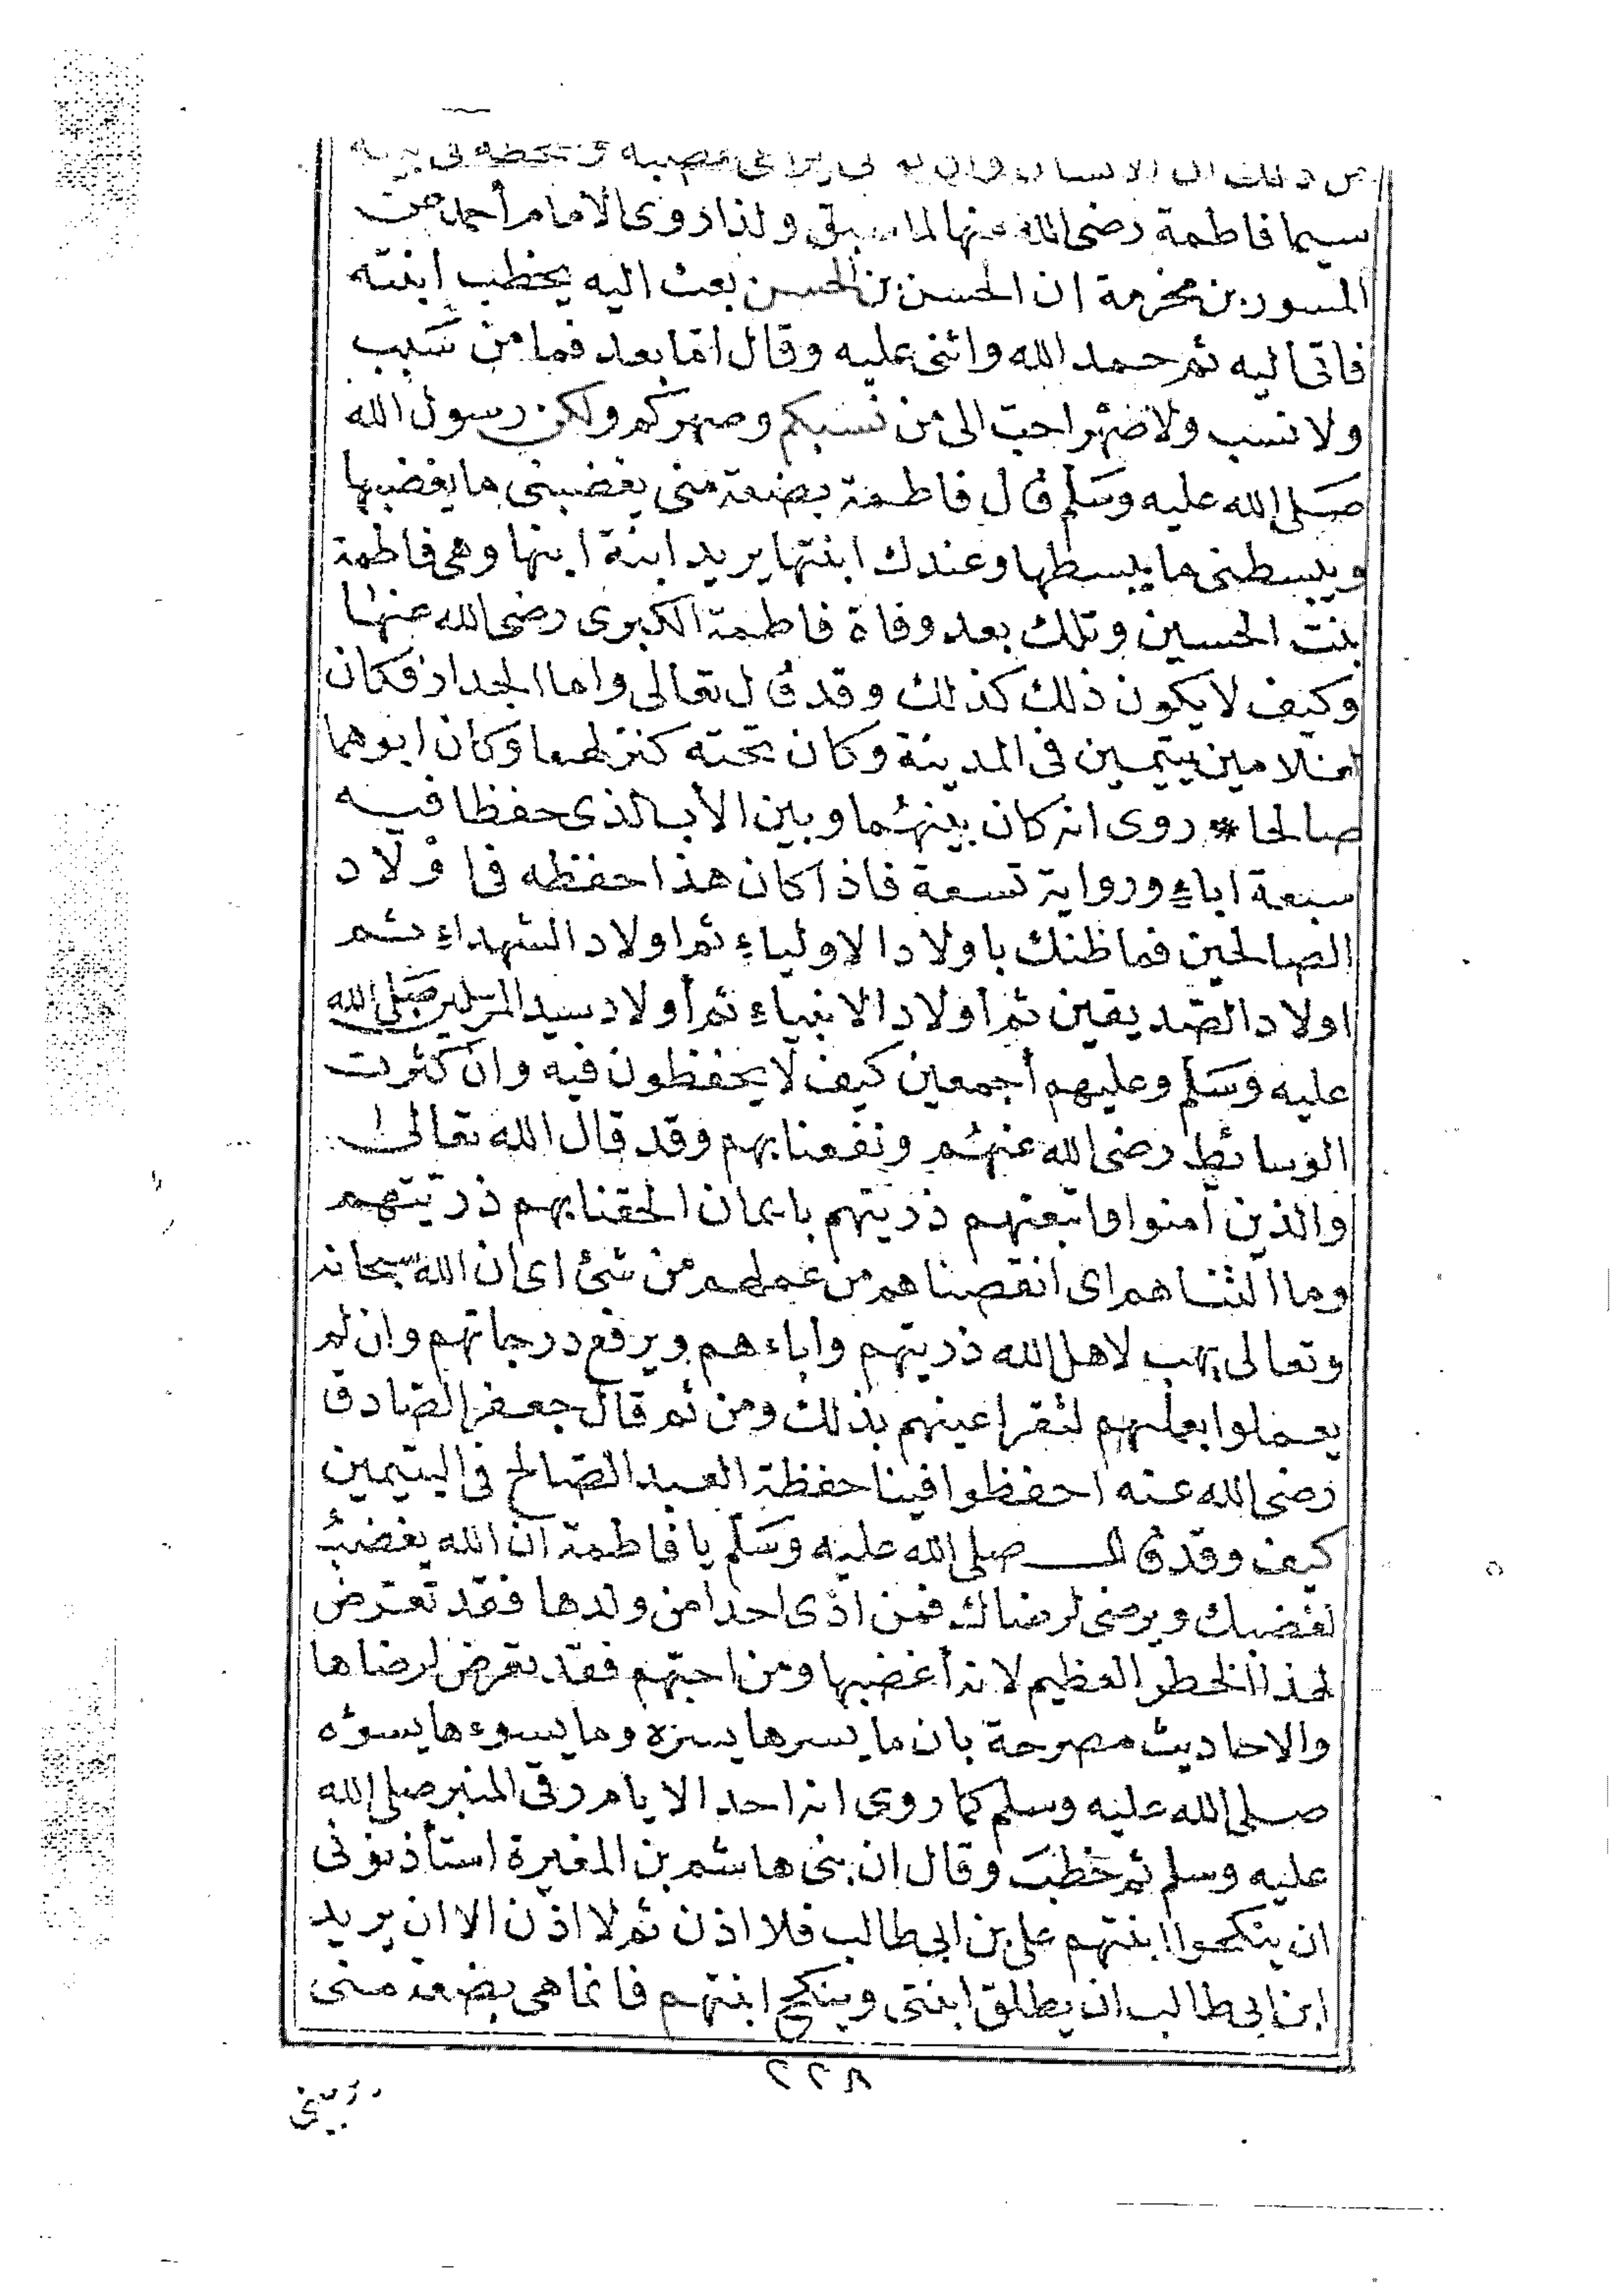 من ذلك ان الانسان وان توفى يراعى عصبه و يحفظه فى
سيما فاطمة رضى الله عنها لما سبق ولذا روى الامام أحمد عن
المسور بن مخرمة ان الحسن بن الحسن بعث اليه يخطب ابنته
فاتى اليه ثم حمد الله واثنى عليه وقال امّا بعد فما من سَبَب
ولا نسب ولا صهْر احبّ الىّ من نسبكم وصهركم ولكن رسول الله
صَلى الله عليه وسَلم قال فاطمة بضعة منى يغضبنى ما يغضبها
ويبسطنى ما يبسطها وعندك ابنتها يريد ابنة ابنها وهى فاطمة
بنت الحسين وتلك بعد وفاة فاطمة الكبرى رضى الله عنها
وكيف لا يكون ذلك كذلك وقد قال تعالى واما الجدار فكان
لغلامين يتيمين فى المدينة وكان تحته كنز لهما وكان ابوهما
صالحا * روى انه كان بينهُما وبين الأب الذى حفظا فيه
سبعة اباء ورواية تسعة فاذا كان هذا حفظه فى اوْلَاد
الصالحين فما ظنك باولاد الاولياء ثم اولاد الشهداء ثم
اولاد الصّديقين ثم أولاد الانبياء ثم أولاد سيد المرسلين صَلى الله
عليه وسَلم وعليهم أجمعين كيف لا يحفظون فيه وان كثرت
الوسائط رضى الله عنهُم ونفعنا بهم وقد قال الله تعالى
والذين آمنوا واتبعتهم ذريتهم بايمان الحقنا بهم ذريتهم
وما التناهم اى انقصناهم من عملهم من شئ اى ان الله سبحانه
وتعالى يهب لاهل الله ذريتهم واباءهم ويرفع درجاتهم وان لم
يعملوا بعملهم لتقر اعينهم بذلك ومن ثم قال جعفر الصّادق
رضى الله عنه احفظوا فينا حفظة العبد الصّالح فى اليتيمين
كيف وقد قال صلى الله عليه وسَلم يا فاطمة ان الله يغضبُ
لغضبك ويرضى لرضاك فمن اذى احدا من ولدها فقد تعَرض
لهذا الخطر العظيم لانه أغضبها ومن احبّهم فقد تعرض لرضاها
والاحاديث مصرحة بان ما يسرها يسره وما يسوءها يسوؤه
صلى الله عليه وسلم كما روى انه احد الايام رقى المنبر صلى الله
عليه وسلم ثم خطبَ وقال ان بنى هاشم بن المغيرة استأذنونى
ان ينكحوا ابنتهم على بن ابى طالب فلا اذن ثم لا اذن الا ان يريد
ابن ابى طالب ان يطلق ابنتى وينكح ابنتهم فانما هى بضعة منى
٢٢٨
يريبنى